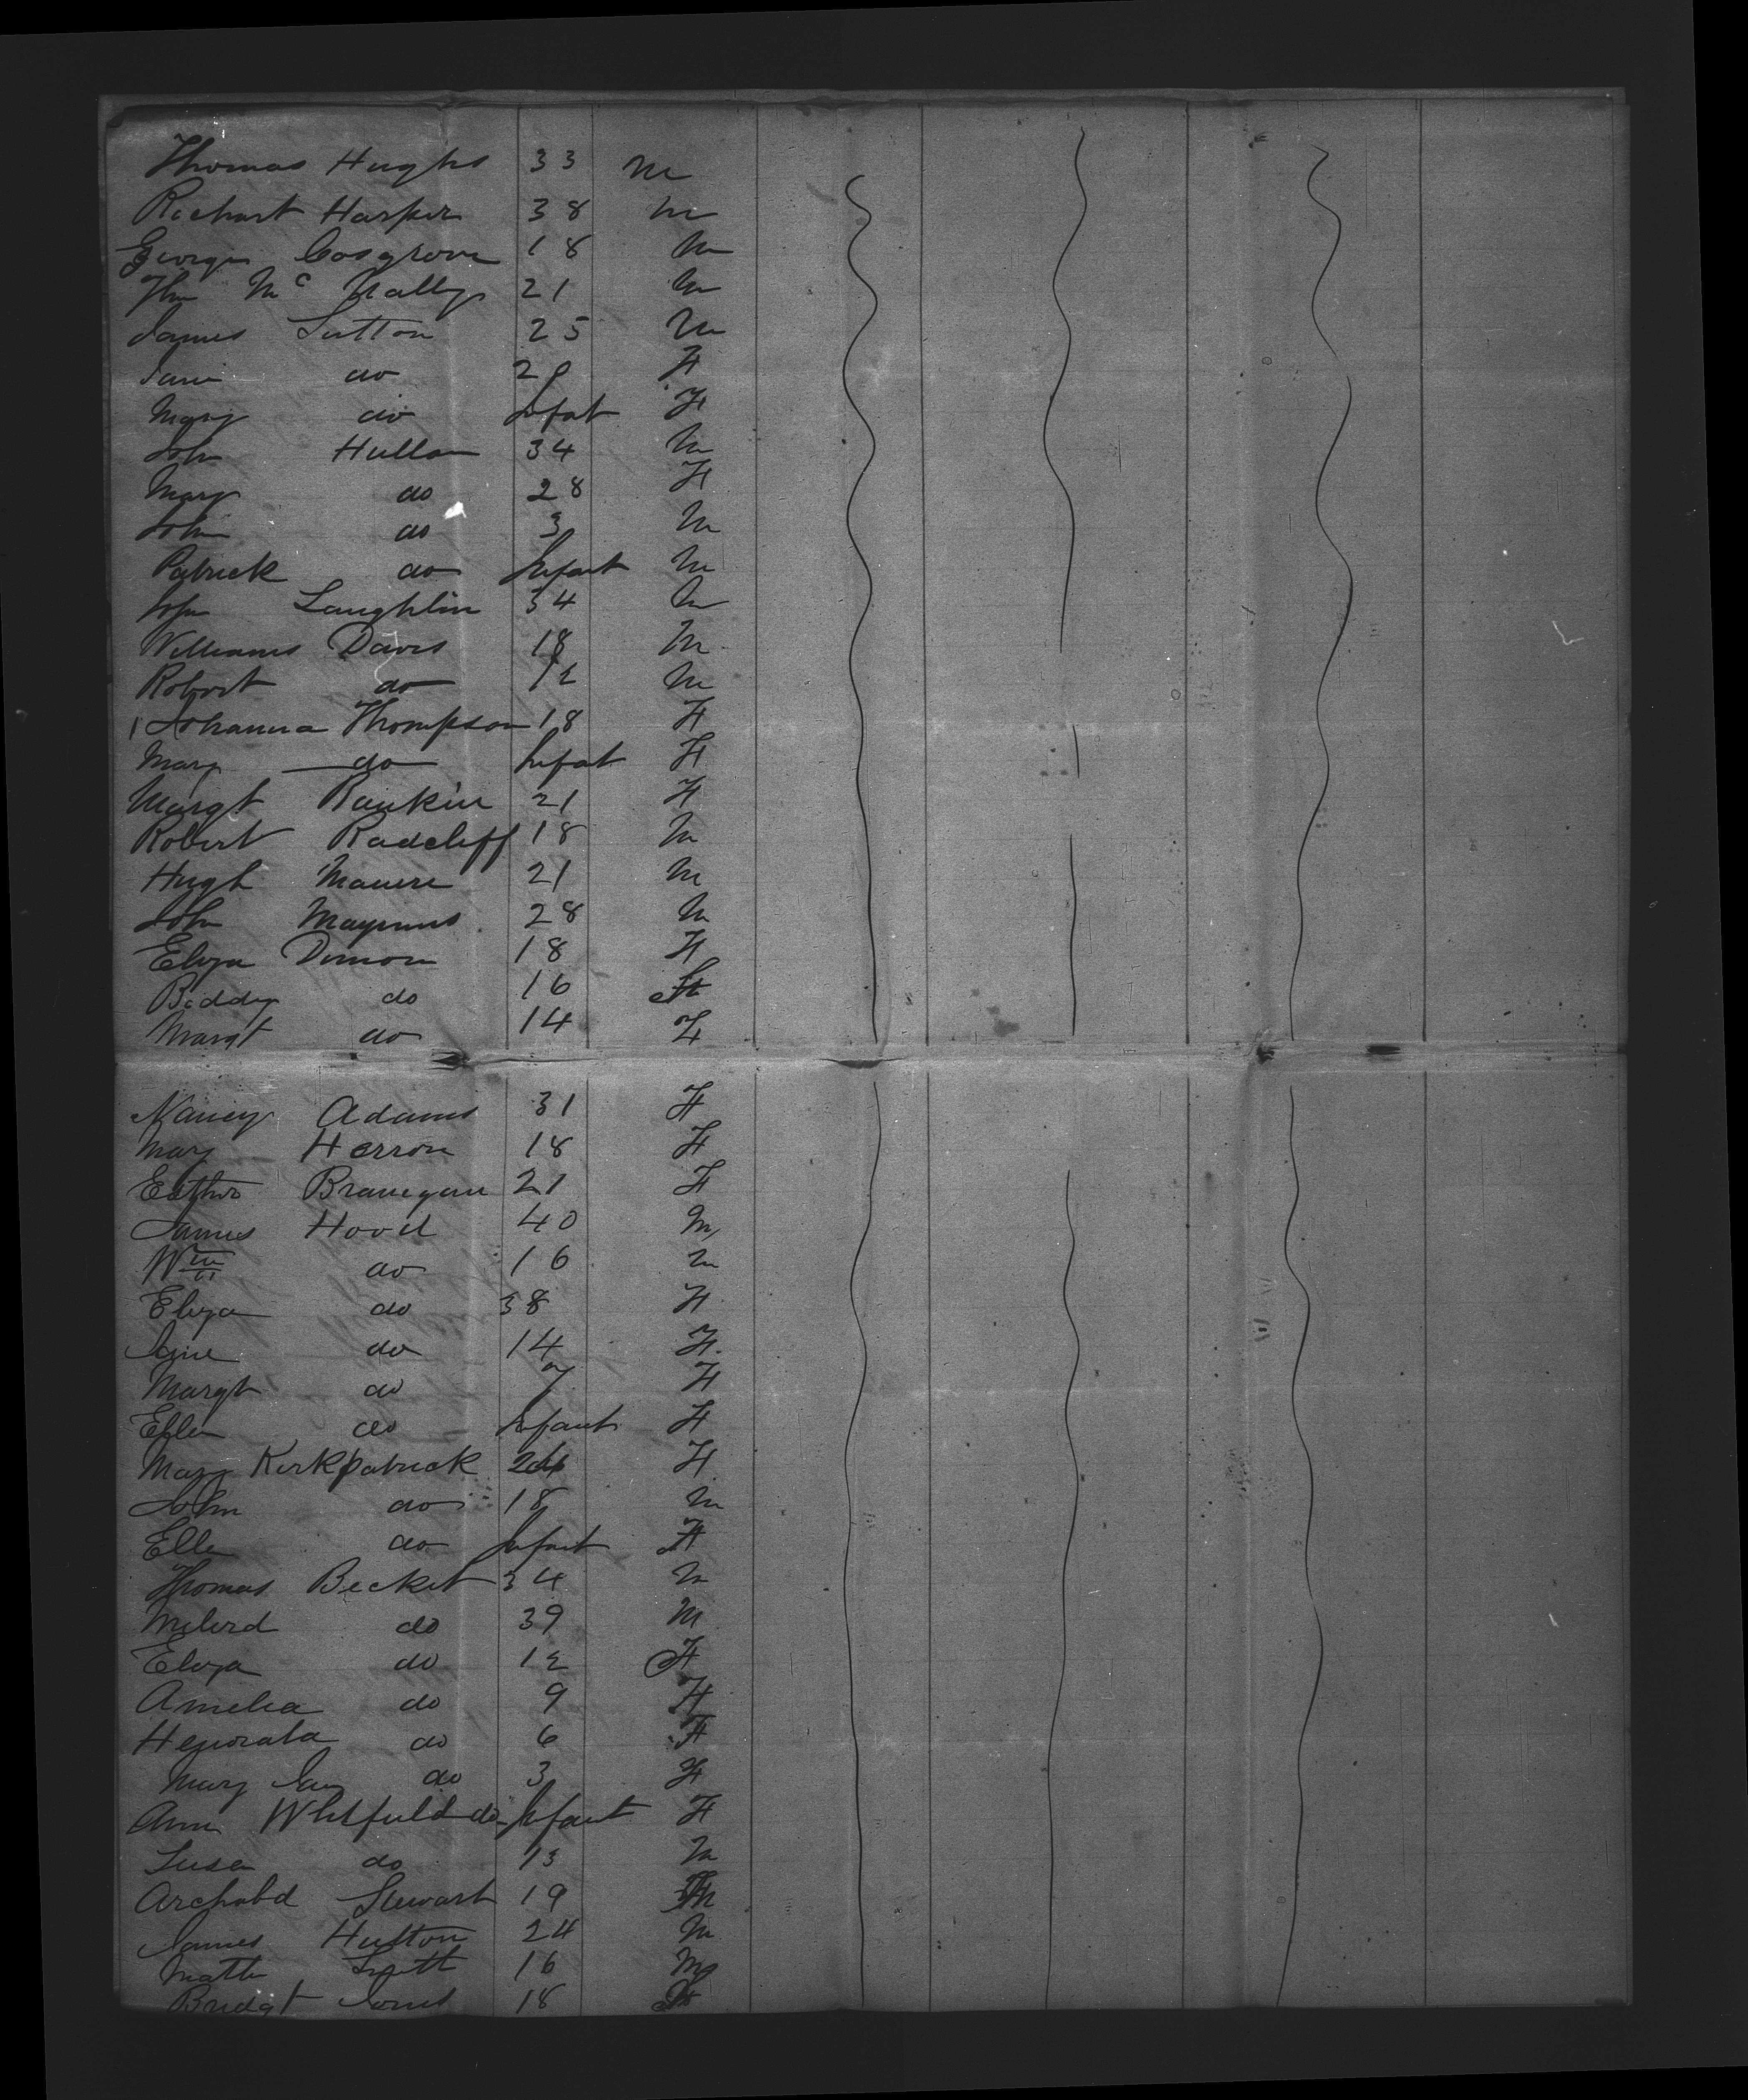 Thomas Hughs 33 M
Richart Harper 38 M
George Cosgrove 18 M
Thm Mc Nally 21 M
James Sutton 25 M
Jane do 20 F
Mary do Infat F
John Hullon 34 M
Mary do 28 F
John do 3 M
Patrick do Infant M
John Laughlin 34 M
Williams Davis 18 M
Robort do 12 M
Johanna Thompson 18 F
Mary do Infat F
Margt Rankin 21 F
Robert Radcliff 18 M
Hugh 21 M
John 28 M
Eliza 18 F
Biddy do 16 F
Margt do 14 F
Nancy Adams 31 F
Mary Herron 18 F
Branegan 21 F
James Hood 40 M
Wm do 16 M
Eliza do 38 F
Jane do 14 F
Margt do 7 F
Ellen do Infant F
Mary Kirkpatrick 24 F
John do 18 M
Ellen do Infant F
Thomas Becket 34 M
do 39 M
Eliza do 12 F
Amelia do 9 F
do 6 F
Mary Jane do 3 F
Ann Whitfield do Infant F
Susan do 13 M
Archabd Stewart 19 M
James Hutton 24 M
16 M
Bridgt Jones 18 F